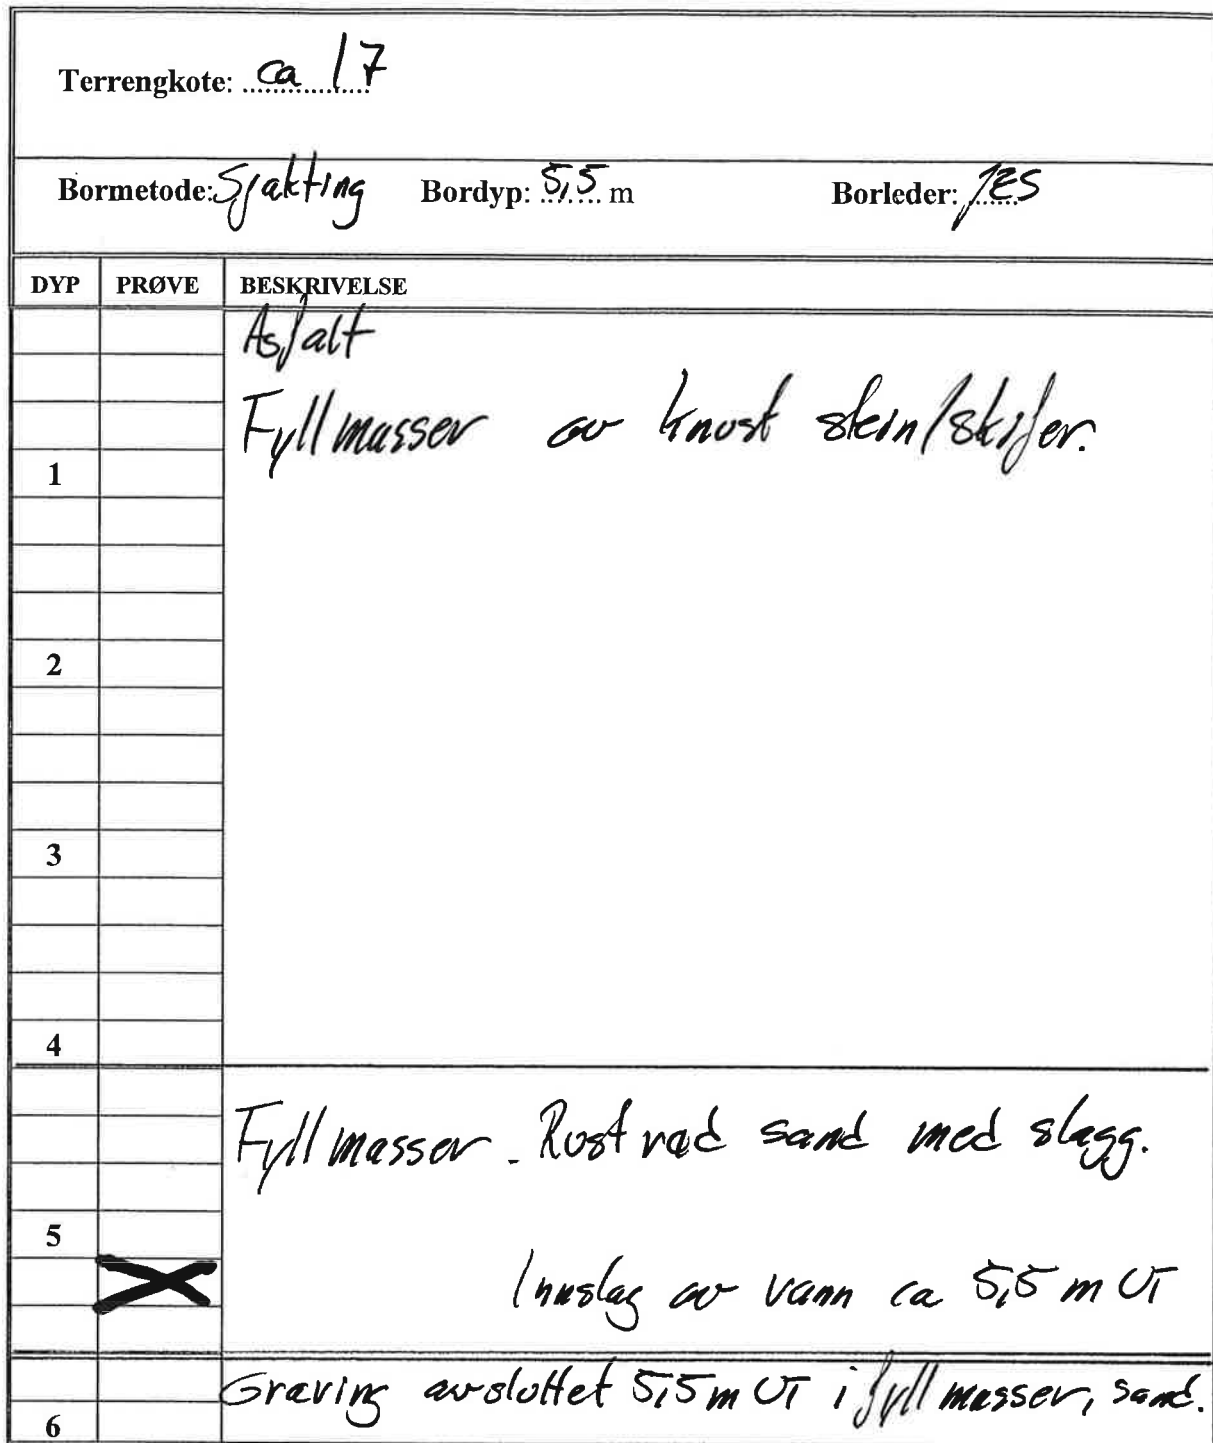 Terrengkote: ca 17
Bormetode: Sjakting Bordyp: 5,5 m Borleder: JES
DYP PRØVE BESKRIVELSE
Asfalt
Fyllmasser av knust stein/skifer.
1
2
3
4
Fyllmasser. Rustrød sand med slagg.
5
Innslag av vann ca 5,5 m UT
Graving avsluttet 5,5 m UT i fyllmasser, sand.
6